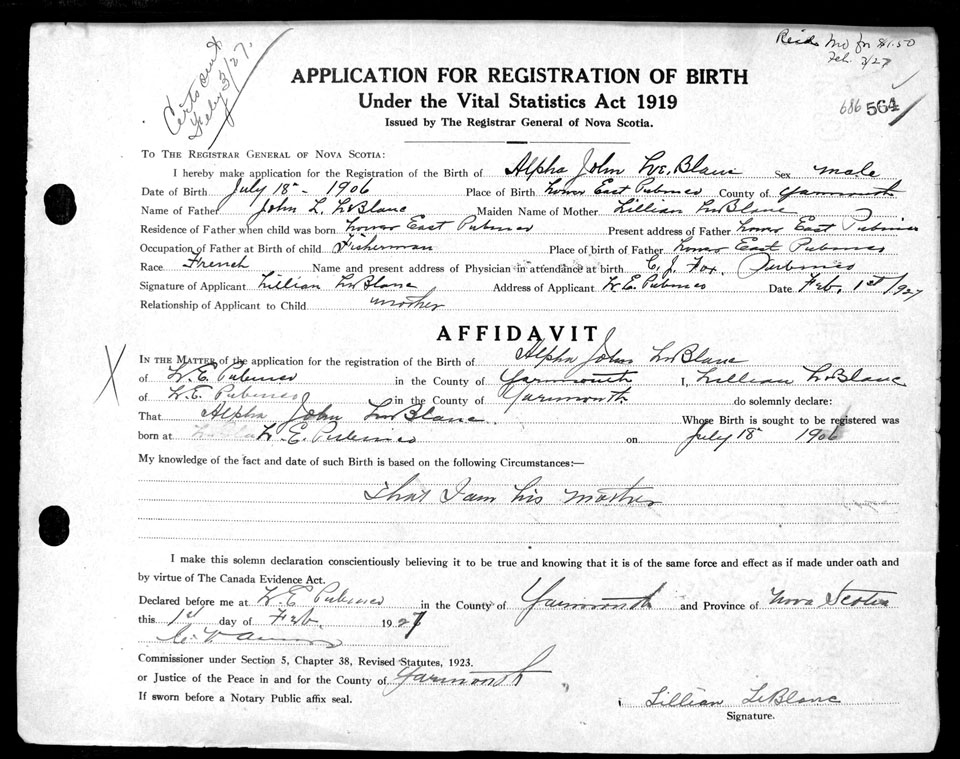 Certs sent
Feby 3/27.
Recd. Mo for $1.50
Feb. 3/27
APPLICATION FOR REGISTRATION OF BIRTH
Under the Vital Statistics Act 1919
Issued by The Registrar General of Nova Scotia.
686 564
TO THE REGISTRAR GENERAL OF NOVA SCOTIA:
I hereby make application for the Registration of the Birth of Alpha John LeBlanc Sex male
Date of Birth July 18th 1906 Place of Birth Lower East Pubnico County of Yarmouth
Name of Father John L. LeBlanc Maiden Name of Mother Lillian LeBlanc
Residence of Father when child was born Lower East Pubnico Present address of Father Lower East Pubnico
Occupation of Father at Birth of child Fisherman Place of birth of Father Lower East Pubnico
Race French Name and present address of Physician in attendance at birth C. J. Fox. Pubnico
Signature of Applicant Lillian LeBlanc Address of Applicant L. E. Pubnico Date Feb. 1st 1927
Relationship of Applicant to Child mother
AFFIDAVIT
IN THE MATTER of the application for the registration of the Birth of Alpha John LeBlanc
of L. E. Pubnico in the County of Yarmouth I, Lillian LeBlanc
of L. E. Pubnico in the County of Yarmouth do solemnly declare:
That Alpha John LeBlanc Whose Birth is sought to be registered was
born at L. E. Pubnico on July 18th 1906
My knowledge of the fact and date of such Birth is based on the following Circumstances:—
That I am his mother
I make this solemn declaration conscientiously believing it to be true and knowing that it is of the same force and effect as if made under oath and
by virtue of The Canada Evidence Act.
Declared before me at L. E. Pubnico in the County of Yarmouth and Province of Nova Scotia
this 1st day of Feb. 1927
Commissioner under Section 5, Chapter 38, Revised Statutes, 1923.
or Justice of the Peace in and for the County of Yarmouth
If sworn before a Notary Public affix seal.
Lillian LeBlanc
Signature.